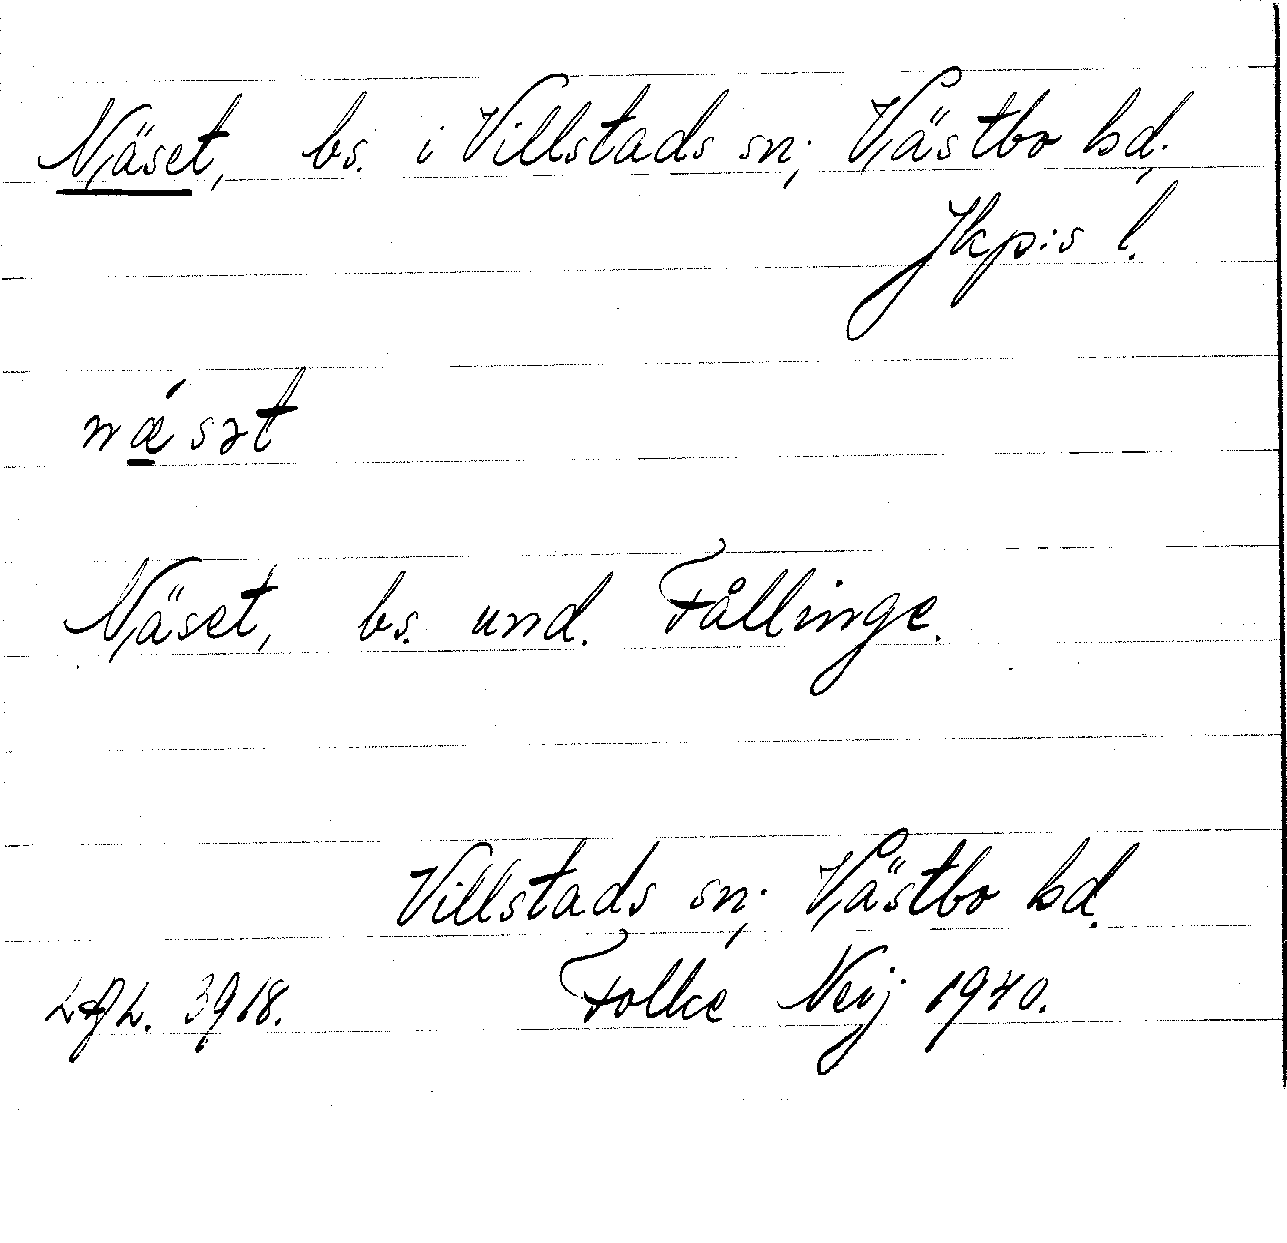 Näset, bs. i Villstads sn; Västbo hd,
Jkp:s l.
nǽ̠sət
Näset, bs. und. Fållinge.
Villstads sn; Västbo hd.
3918. Folke Neij 1940.